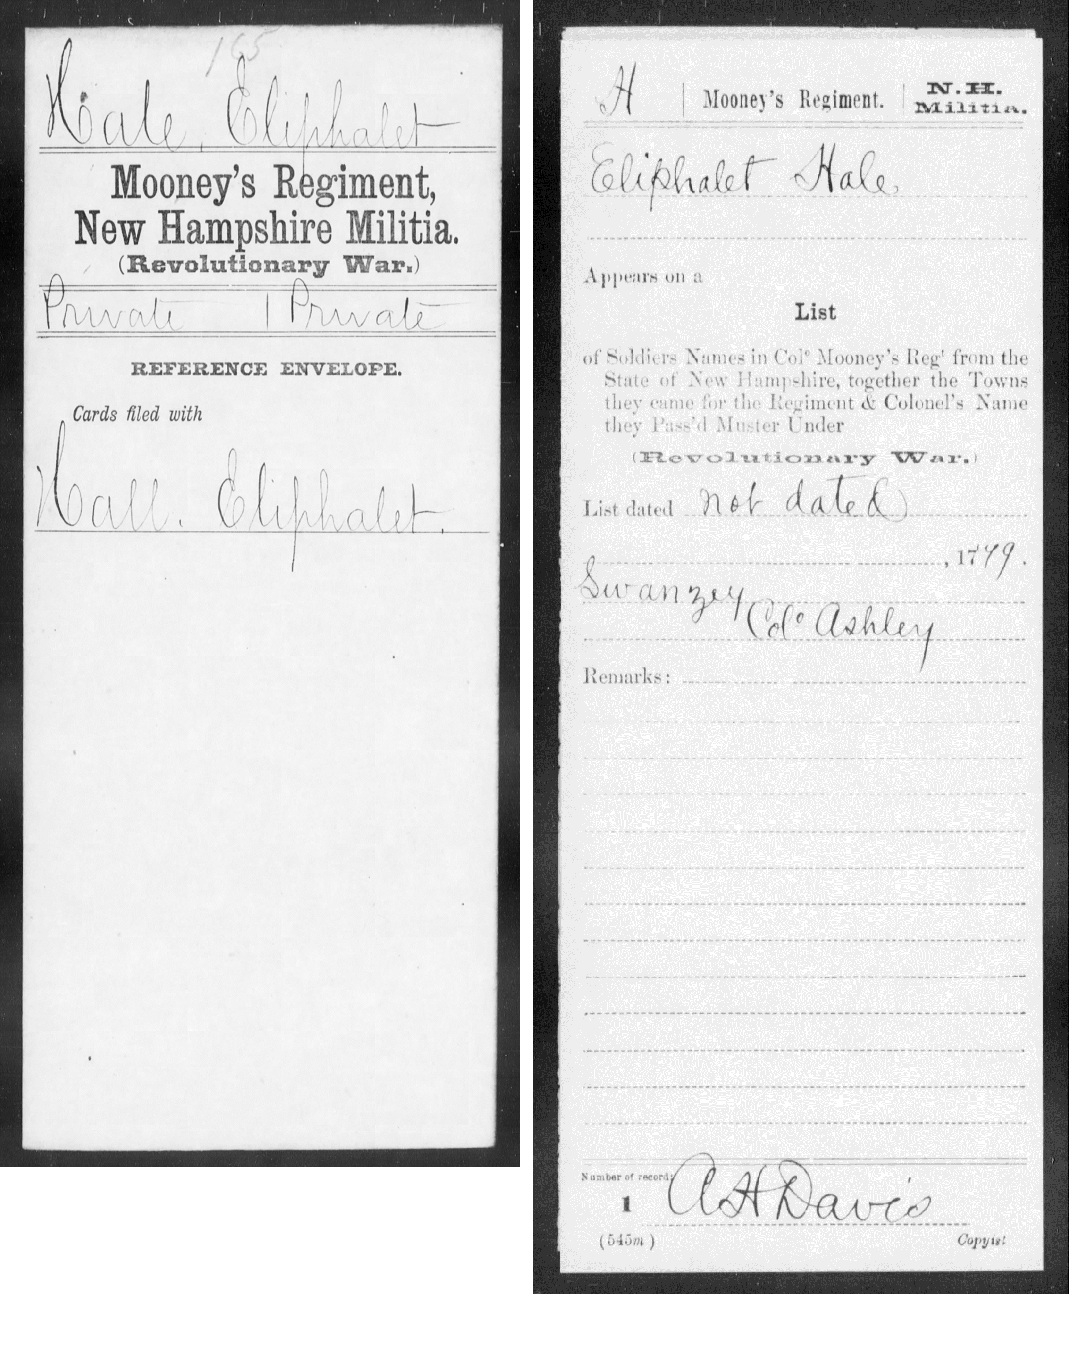 165
Hale, Eliphalet
Mooney's Regiment,
New Hampshire Militia.
(Revolutionary War.)
Private | Private
REFERENCE ENVELOPE.
Cards filed with
Hall, Eliphalet.
H | Mooney's Regiment. | N. H. Militia.
Eliphalet Hale.
Appears on a
List
of Soldiers Names in Colo Mooney's Regt from the
State of New Hampshire, together the Towns
they came for the Regiment & Colonel's Name
they Pass'd Muster Under
(Revolutionary War.)
List dated not dated
, 1779.
Swanzey
Colo Ashley
Remarks:
Number of record:
1 A H Davis
(545m) Copyist